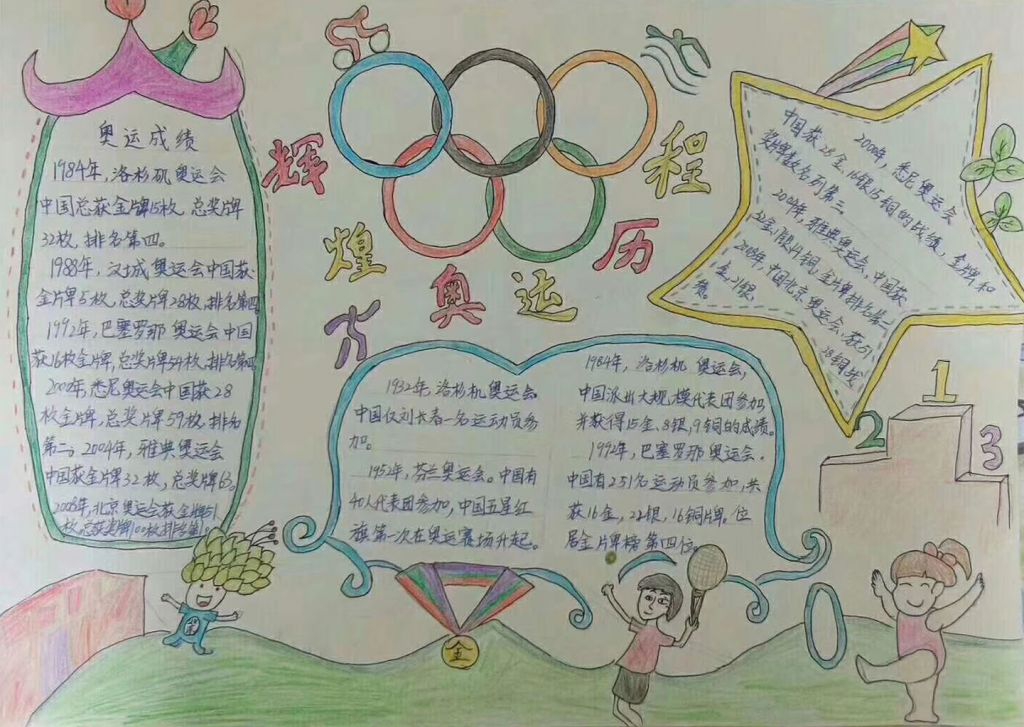 奥运成绩
1984年,洛杉矶奥运会
中国总获金牌15枚,总奖牌
32枚,排名第四。
1988年,汉城奥运会中国获
金牌5枚,总奖牌28枚,排名第四
1992年,巴塞罗那奥运会中国
获16枚金牌,总奖牌54枚,排名第四
2000年,悉尼奥运会中国获28
枚金牌,总奖牌59枚,排名
第二。2004年,雅典奥运会
中国获金牌32枚,总奖牌63。
2008年,北京奥运会获金牌51
枚,总获奖牌100枚排名第1
辉
煌
奥
运
历
程
1932年,洛杉机奥运会
中国仅刘长春一名运动员参
加。
1952年,芬兰奥运会。中国有
40人代表团参加,中国五星红
旗第一次在奥运赛场升起。
1984年,洛杉机奥运会,
中国派出大规模代表团参加
并获得15金、8银,9铜的成绩。
1992年,巴塞罗那奥运会,
中国有251名运动员参加,共
获16金,22银,16铜牌。位
居金牌榜第四位。
2000年,悉尼奥运会
中国获28金,16银15铜的战绩,金牌和
奖牌数名列第三
2004年,雅典奥运会,中国获
32金,17银,14铜,金牌排名第二
2008年,中国北京奥运会,获51
金,21银,
28铜战
绩
1
2
3
金